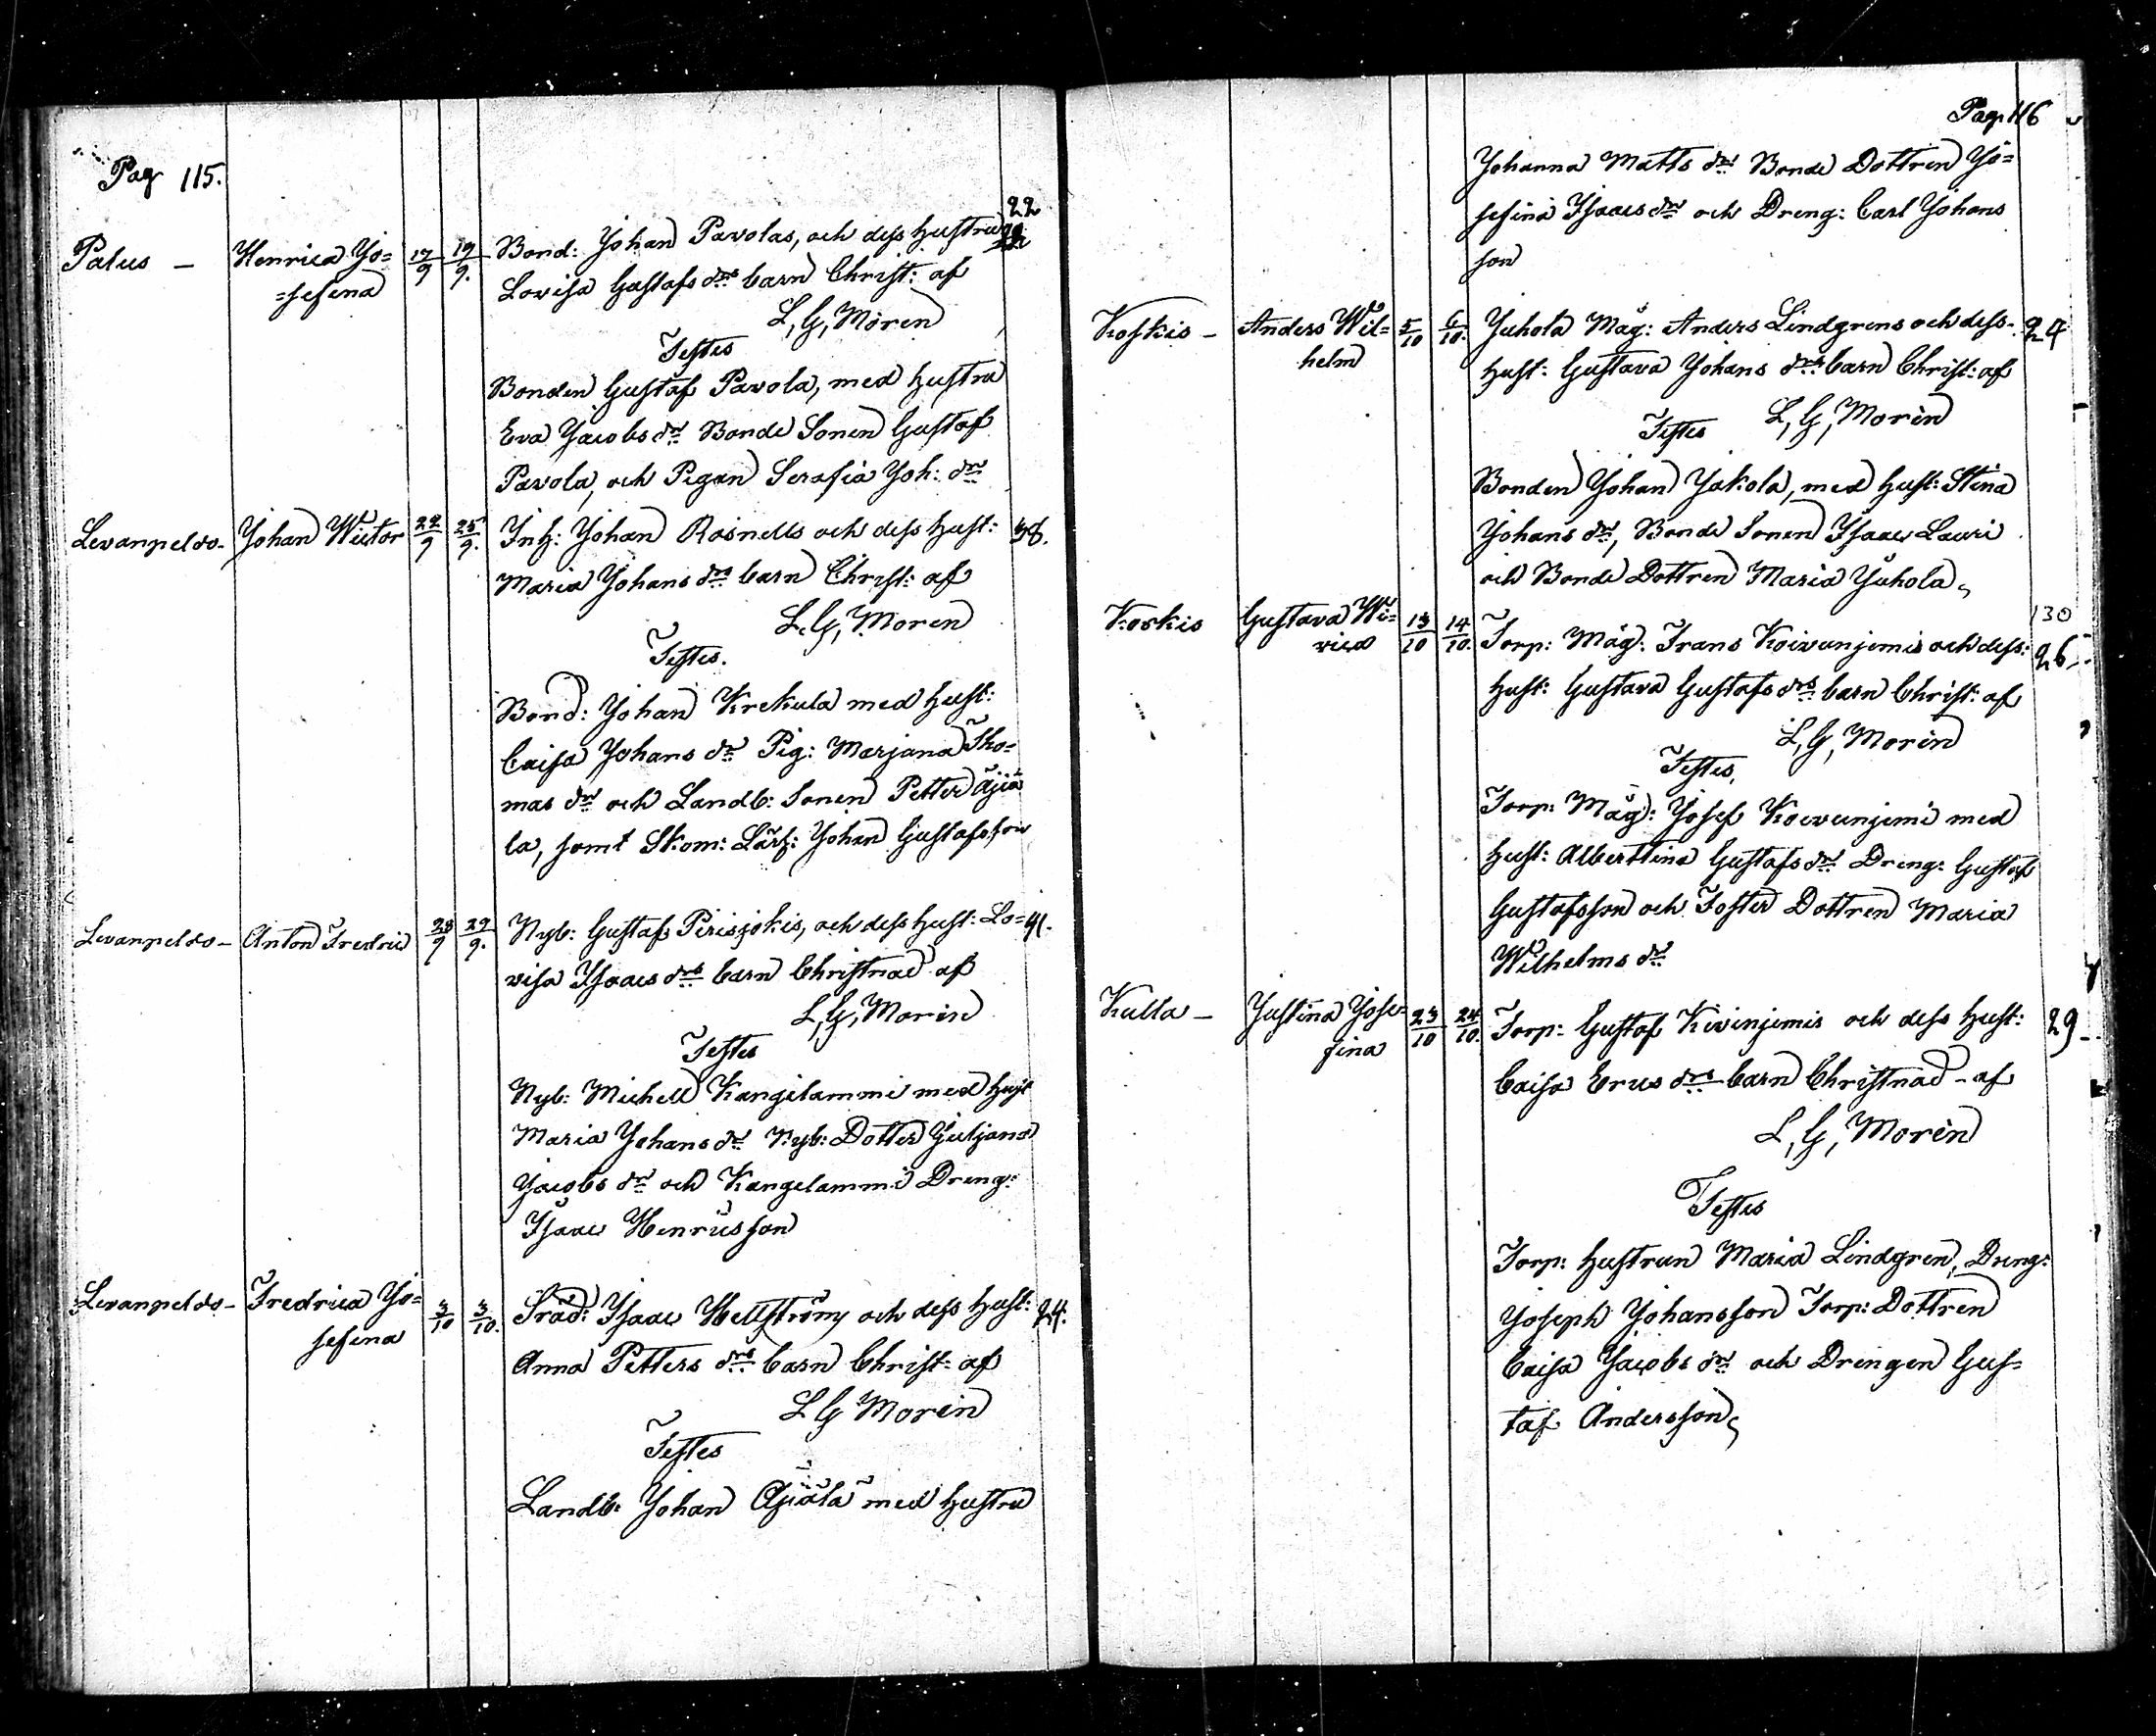 Pag 115.
22
Palus — Henrica Jo= 17/9 19/9. Bond: Johan Pavolas, och dess hustru
=sefina Lovisa Gustafs drs barn Christ: af
L, G, Morén
Testes
Bonden Gustaf Pavola, med hustru
Eva Jacobs dr Bonde Sonen Gustaf
Pavola, och Pigan Serafia Joh: dr
Levanpeldo- Johan Wictor 22/9 25/9. Inh: Johan Rosnells och dess hust: 38.
Maria Johans drs barn Christ: af
L. G, Moren
Testes.
Bond: Johan Krekula med hust:
Caisa Johans dr Pig: Marjana Tho=
mas dr och Landb: Sonen Petter Äjiä
la, samt Skom: Lärf: Johan Gustafsson
Levanpeldo- Anton Fredric 28/9 29/9. Nyb: Gustaf Pirisjokis, och dess hust: Lo= 41.
visa Isaacs drs barn Christnad af
L, G, Morin
Testes
Nyb: Michell Kangilammi med hust
Maria Johans dr Nyb: Dotter Juljana
Jacobs dr och Kangelammi Dreng:
Isaac Henricsson
Levanpeldo- Fredrica Jo= 3/10 3/10. Träd: Isaac Hellström och dess hust: 24.
sefina Anna Petters drs barn Christ: af
L G Morin
Testes
Landb: Johan Äjiälä med hustru
Pag. 116
Johanna Matts dr Bonde Dottren Jo=
sefina Isaacs dr och Dreng: Carl Johans
son
Koskis — Anders Wil= 5/10 6/10. Juhola Mäg: Anders Lindgrens och dess 24
helm hust: Gustava Johans drs barn Christ: af
Testes L, G, Morin
Bonden Johan Jakola, med hust: Stina
Johans dr, Bonde Sonen Isaac Lauri
och Bonde Dottren Maria Juhola,
130
Koskis Gustava Wi= 13/10 14/10. Torp: Mäg: Frans Koivunjemis och dess: 26
rica hust: Gustava Gustafs drs barn Christ: af
L, G, Morin
Testes,
Torp: Mäg: Josef Koivunjemi med
hust: Alberttina Gustafs dr Dreng: Gustaf
Gustafsson och Foster Dottren Maria
Wilhelms dr
Kulla — Justina Jose= 23/10 24/10. Torp: Gustaf Kivinjemis och dess hust: 29
fina Caisa Erics drs barn Christnad af
L, G, Morén
Testes
Torp: hustrun Maria Lindgren, Dreng:
Joseph Johansson Torp: Dottren
Caisa Jacobs dr och Drengen Gus=
taf Andersson,